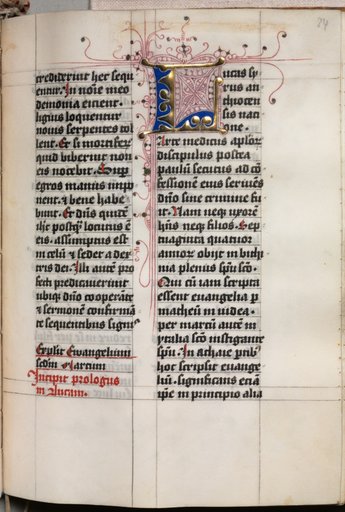 24
crediderint hec sequ
entur. In noie meo
demonia eicient.
liguis loquentur
nouis serpentes tol
lent. Et si mortifer
quid biberint non
eis nocebit. Sup
egros manus imp
nent. et bene habe
bunt. Et dns quidē
ihc postq̄ locutus ē
eis. assumptus est
in celū et sedet a dex
tris dei. Illi autē pro
fecti predicauerunt
ubiqȝ dno cooperāte
et sermonē confirmā
te sequentibus signis
Explic Ewangelium
scdm Marcum
Incipit prologus
in Lucam.
Lucas sy
rus an
thiocen
sis nati
one.
Arte medicus aplor
discipulus postea
paulū secutus ad cō
fessionē eius seruiēs
dno sine crimine fu
it. Nam neqȝ uxorē
hns neqȝ filios. Sep
tuaginta quatuor
annor obijt in bithi
nia plenus spū sco.
Qui cū iam scripta
essent euangelia p
matheū in iudea.
per marcū autē in
ytalia sco instigante
spū. In achaie ptibȝ
hoc scripsit euange
liū. significans eciā
ipe in principio alia